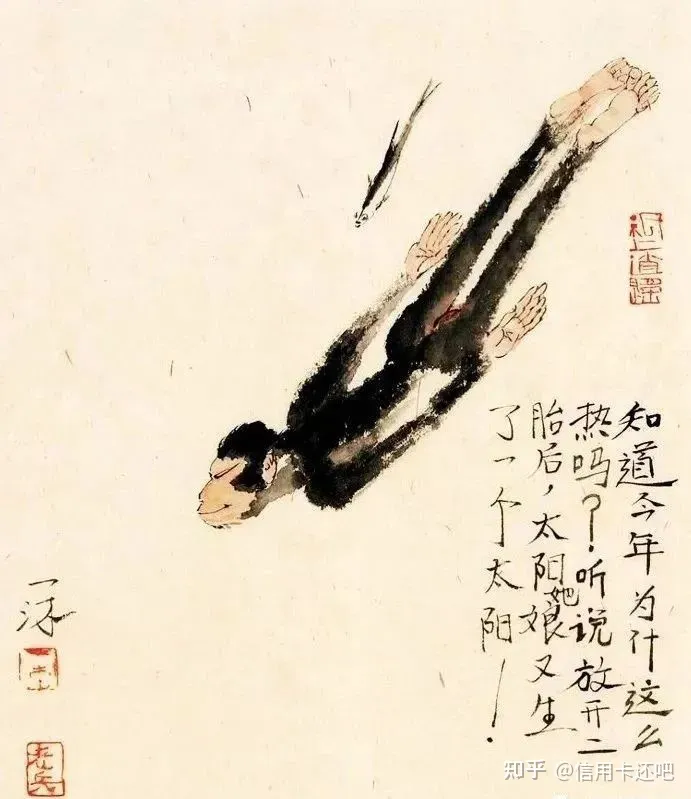 知道今年为什这么
热吗？！听说放开二
胎后，太阳她娘又生
了一个太阳！
一沐
知乎 @信用卡还吧